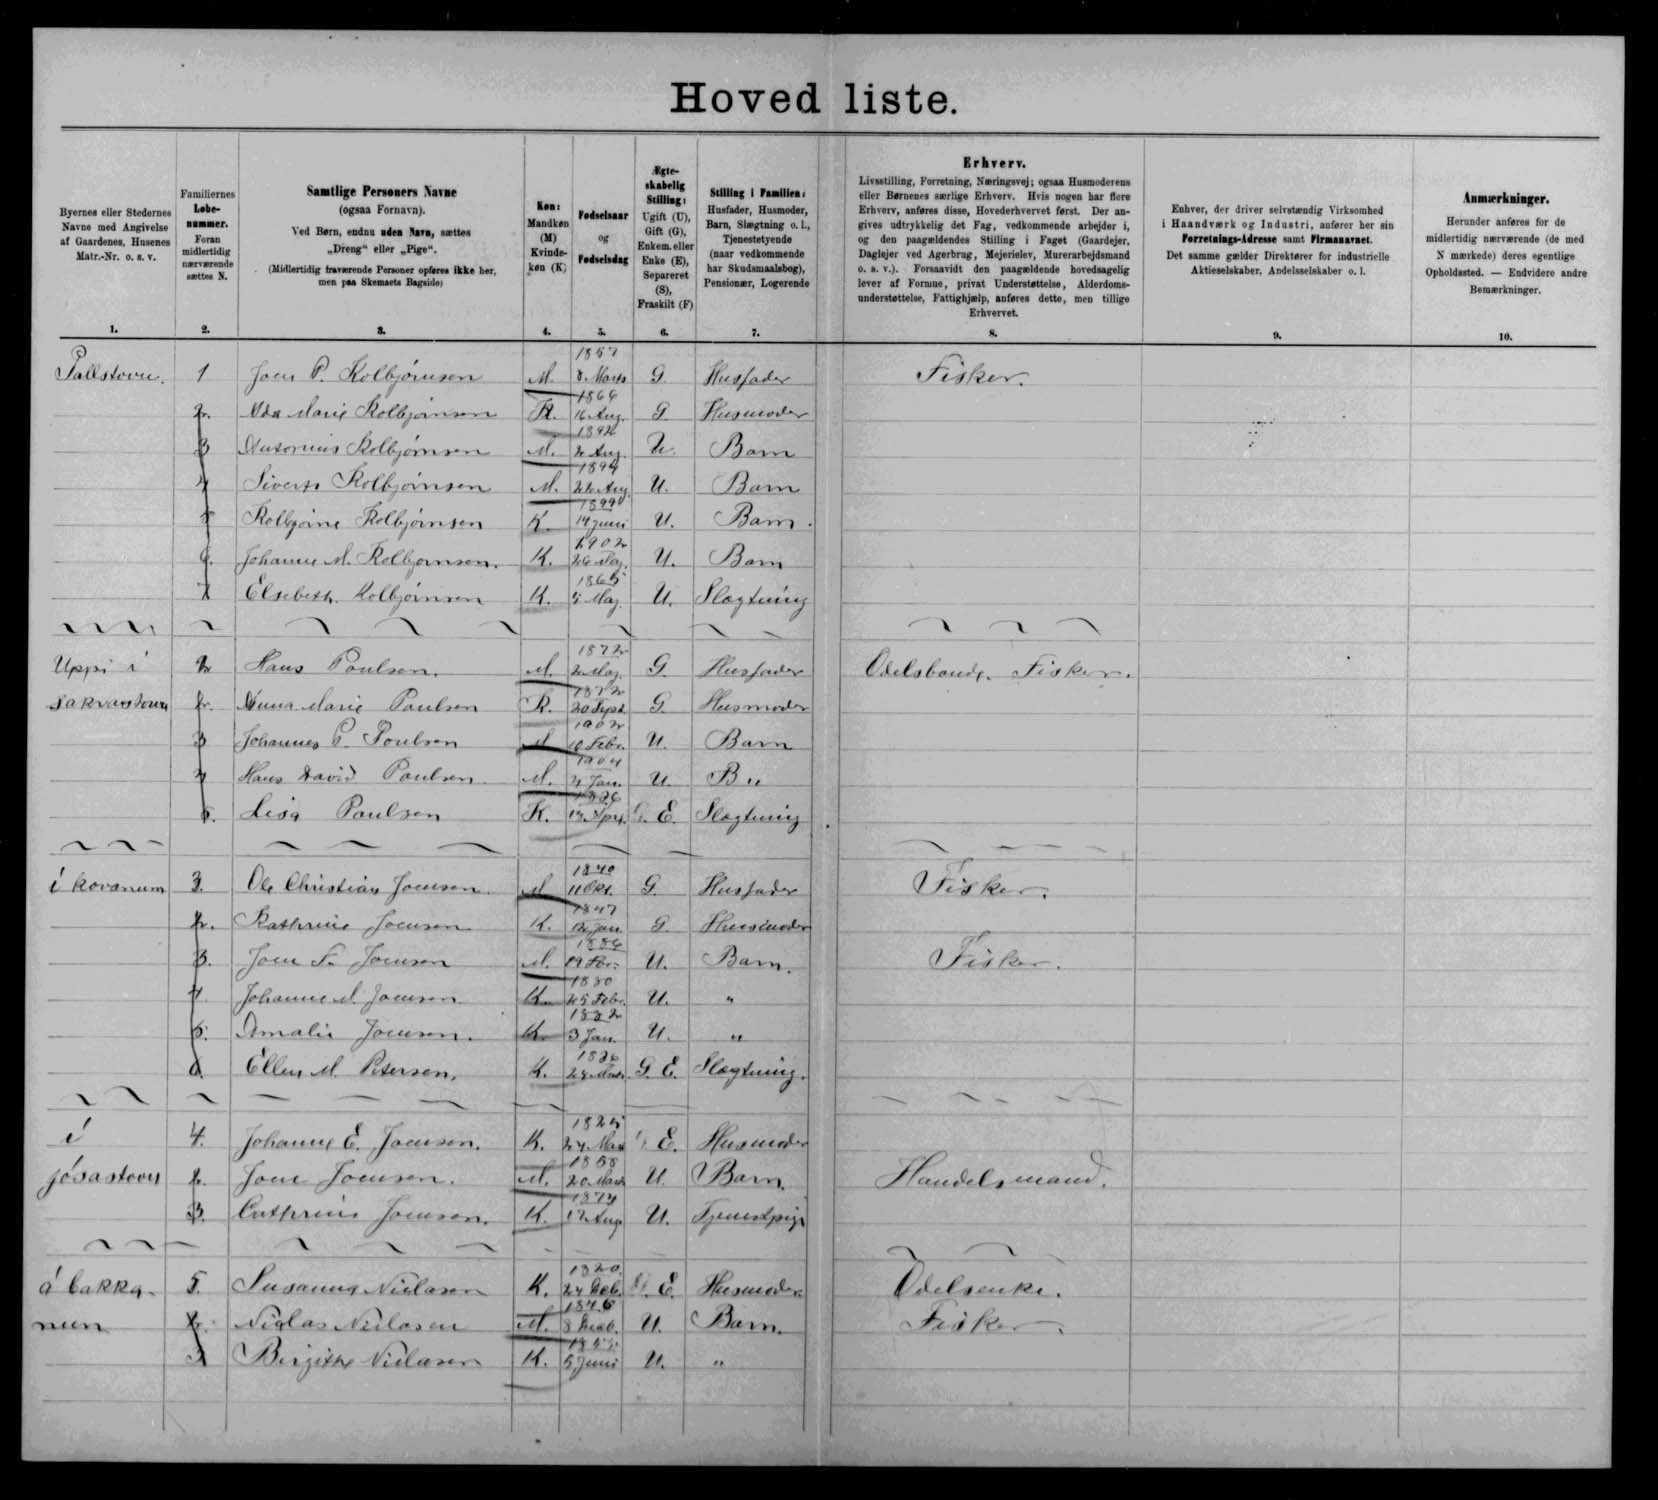 Hoved liste.
Byernes eller Stedernes Navne med Angivelse af Gaardenes, Husenes Matr.-Nr. o. s. v.
Familiernes Løbenummer. Foran midlertidig nærværende sættes N.
Samtlige Personers Navne
(ogsaa Fornavn).
Ved Børn, endnu uden Navn, sættes „Dreng" eller „Pige".
(Midlertidig fraværende Personer opføres ikke her, men paa Skemaets Bagside)
Køn: Mandkøn (M) Kvindekøn (K)
Fødselsaar og Fødselsdag
Ægteskabelig Stilling: Ugift (U), Gift (G), Enkem. eller Enke (E), Separeret (S), Fraskilt (F)
Stilling i Familien: Husfader, Husmoder, Barn, Slægtning o. l., Tjenestetyende (naar vedkommende har Skudsmaalsbog), Pensionær, Logerende
Erhverv.
Livsstilling, Forretning, Næringsvej; ogsaa Husmoderens eller Børnenes særlige Erhverv. Hvis nogen har flere Erhverv, anføres disse, Hovederhvervet først. Der angives udtrykkelig det Fag, vedkommende arbejder i, og den paagældendes Stilling i Faget (Gaardejer, Daglejer ved Agerbrug, Mejerielev, Murerarbejdsmand o. s. v.). Forsaavidt den paagældende hovedsagelig lever af Formue, privat Understøttelse, Alderdomsunderstøttelse, Fattighjælp, anføres dette, men tillige Erhvervet.
Enhver, der driver selvstændig Virksomhed i Haandværk og Industri, anfører her sin Forretnings-Adresse samt Firmanavnet. Det samme gælder Direktører for industrielle Aktieselskaber, Andelsselskaber o. l.
Anmærkninger.
Herunder anføres for de midlertidig nærværende (de med N mærkede) deres egentlige Opholdssted. — Endvidere andre Bemærkninger.
1. 2. 3. 4. 5. 6. 7. 8. 9. 10.
Pallstovu. 1 Joen P. Kolbjørnsen M. 1857 8 Marts G. Husfader Fisker.
2. Ada Marie Kolbjørnsen K. 1864 16 Aug. G Husmoder
3 Kolbjørnsen M. 2 Aug. U. Barn
4 Sivert Kolbjørnsen M. 1894 22 Aug. U. Barn
5 Kolbjørnsen K. 14 Juni U. Barn.
6. Johanne M. Kolbjørnsen. K. 1902 26 Maj. U. Barn
7 Elsebeth Kolbjørnsen K. 1865 5 Maj. U. Slægtning
Uppi í 2 Hans Poulsen. M. 1872 2 Maj. G. Husfader Odelsbonde. Fisker.
2. Anna Marie Poulsen K. 1872 20 Sept. G. Husmoder
3 Johannes P. Poulsen M 1902 10 Febr. U. Barn
4 Hans David Poulsen. M. 1904 Jan. U. B „
5. Lisa Poulsen K. E. Slægtning
í kovanum 3. Ole Christian Joensen. M 1840 11 Okt. G. Husfader Fisker.
2. Kathrine Joensen K. 1847 Jan. G. Husmoder
3. Joen F. Joensen M. 1886 U. Barn. Fisker.
4. Johanne M. Joensen K. 1880 25 Febr. U. „
5. Amalie Joensen. K. 1882 3 Jan. U. „
6. Ellen M. Petersen. K. 1826 G. E. Slægtning.
í 4. Johanne E. Joensen. K. 1825 E. Husmoder
jósastovu 2. Joen Joensen. M. 1858 20 Marts U. Barn. Handelsmand.
3. Cathrine Joensen. K. 1874 17 Aug U. Tjenestpige
á bakka- 5. Susanna Nielasen K. 1820. E. Husmoder Odelsenke.
num 2. Niclas Nielasen M. 1846 8 U. Barn. Fisker.
3 Birgithe Nielasen K. 5 Juni U. „